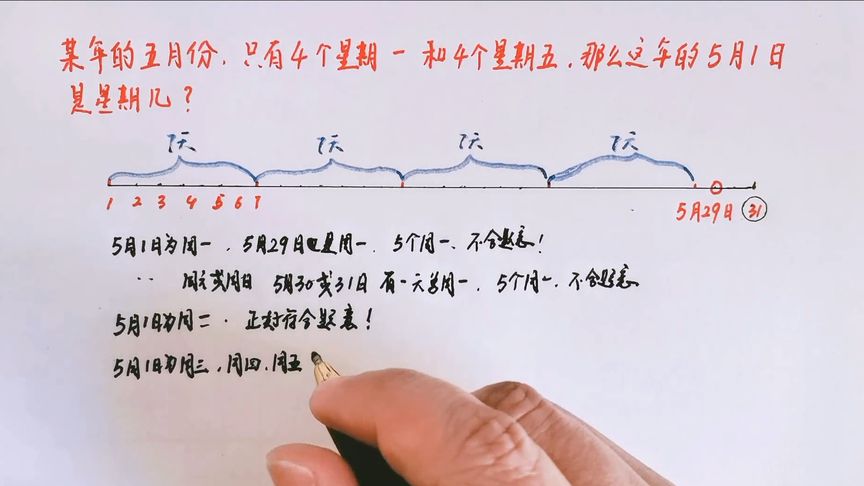 某年的五月份，只有4个星期一和4个星期五，那么这年的5月1日
是星期几？
7天 7天 7天 7天
1 2 3 4 5 6 7 5月29日 31
5月1日为周一，5月29日也是周一，5个周一、不合题意！
〃 周六或周日 5月30或31日 有一天为周一，5个周一，不合题意
5月1日为周二． 正好符合题意！
5月1日为周三，周四，周五